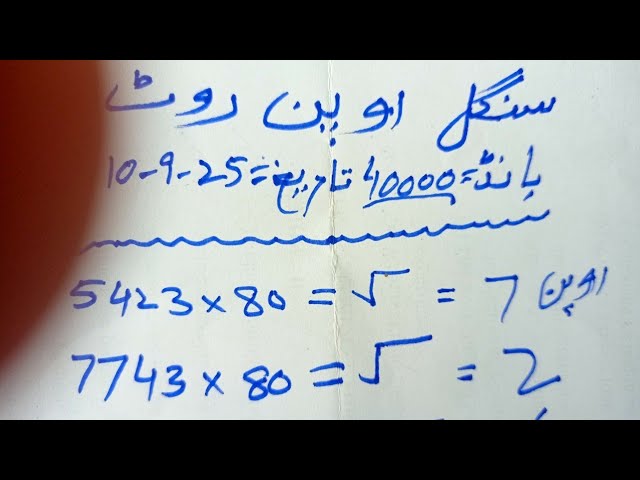 سنگل اوپن روٹ
بانڈ=40000 تاریخ=10-9-25
5423×80=√=7 اوپن
7743×80=√=2